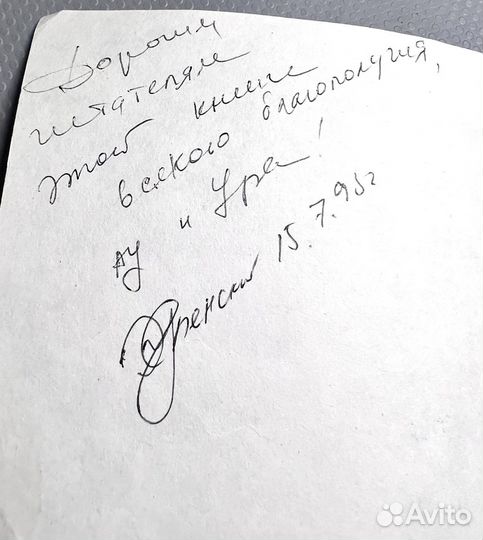 Дорогим
читателям
этой книги
всякого благополучия,
ну и Ура!
Оренский 15.7.95г
Avito